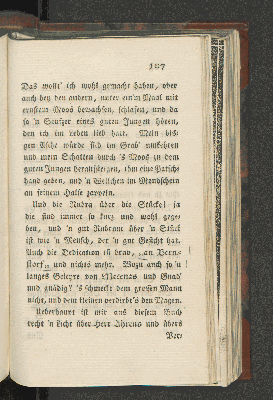 107
Das wollt' ich wohl gemacht haben, ober
auch bey den andern, unter ein'm Maal mit
ernstem Moos bewachsen, schlafen, und da
so 'n Seufzer eines guten Jungen hören,
den ich im Leben lieb hatt. Mein bis-
gen Asche würde sich im Grab' umkehren
und mein Schatten durch 's Moos zu dem
guten Jungen heransteigen, ihm eine Patsch-
hand geben, und 'n Weilchen im Mondschein
an seinem Halse zappeln.
Und die Rubra über die Stücke! ja
die sind immer so kurz und wohl gege-
ben, und 'n gut Rubrum über 'n Stück
ist wie 'n Mensch, der 'n gut Gesicht hat.
Auch die Dedication ist brav, „an Berns-
storf„ und nichts mehr. Wozu auch so 'n
langes Geleyre von Mäcenas und Gnad'
und gnädig? 's schmeckt dem großen Mann
nicht, und dem kleinen verdirbt's den Magen.
Ueberhaupt ist mir aus diesem Buch
recht 'n Licht über Herr Ahrens und übers
Ver-